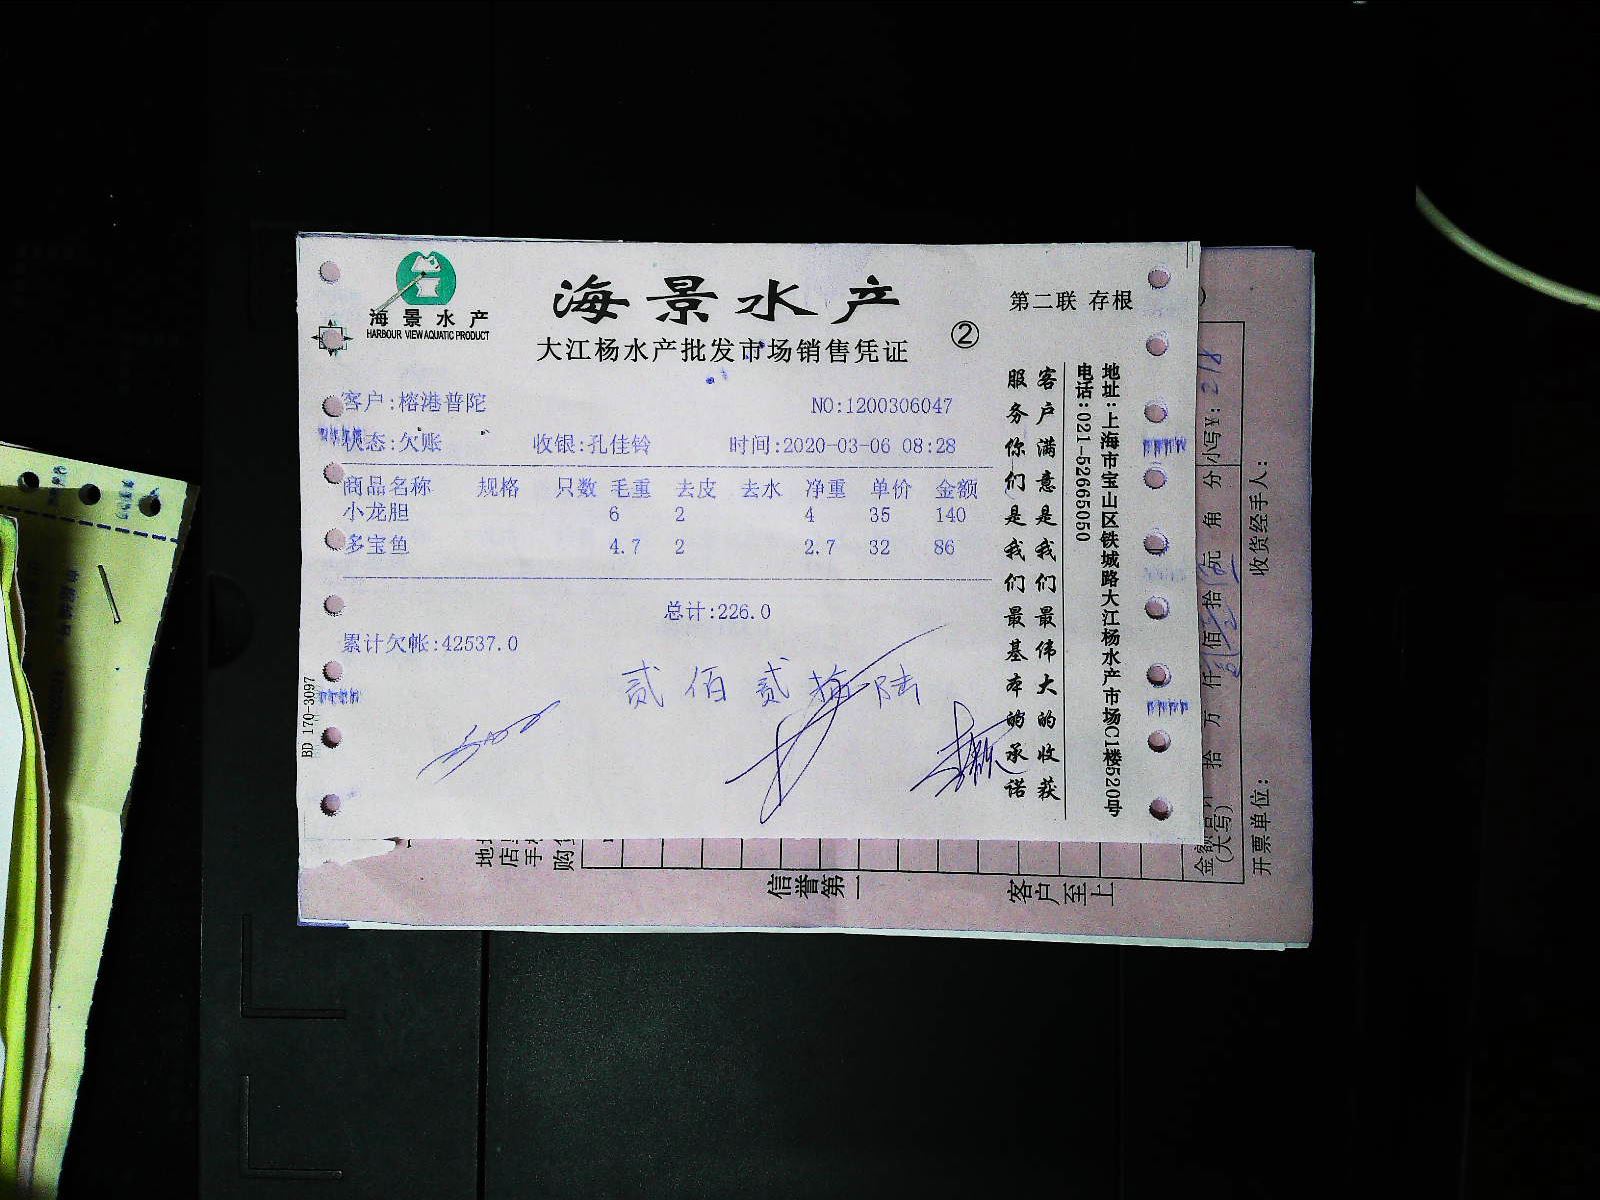 海景水产
HARBOUR VIEW AQUATIC PRODUCT
海景水产
大江杨水产批发市场销售凭证
②
第二联 存根
客户:榕港普陀
NO:1200306047
状态:欠账 收银:孔佳铃 时间:2020-03-06 08:28
商品名称 规格 只数 毛重 去皮 去水 净重 单价 金额
小龙胆 6 2 4 35 140
多宝鱼 4.7 2 2.7 32 86
总计:226.0
累计欠帐:42537.0
贰佰贰拾陆
BD 170-3097
客户满意是我们最伟大的收获
服务你们是我们最基本的承诺
地址:上海市宝山区铁城路大江杨水产市场C1楼520号
电话:021-52665050
小写¥: 218
拾万仟佰拾元角分
(大写)
收货经手人:
开票单位:
信誉第一
客户至上